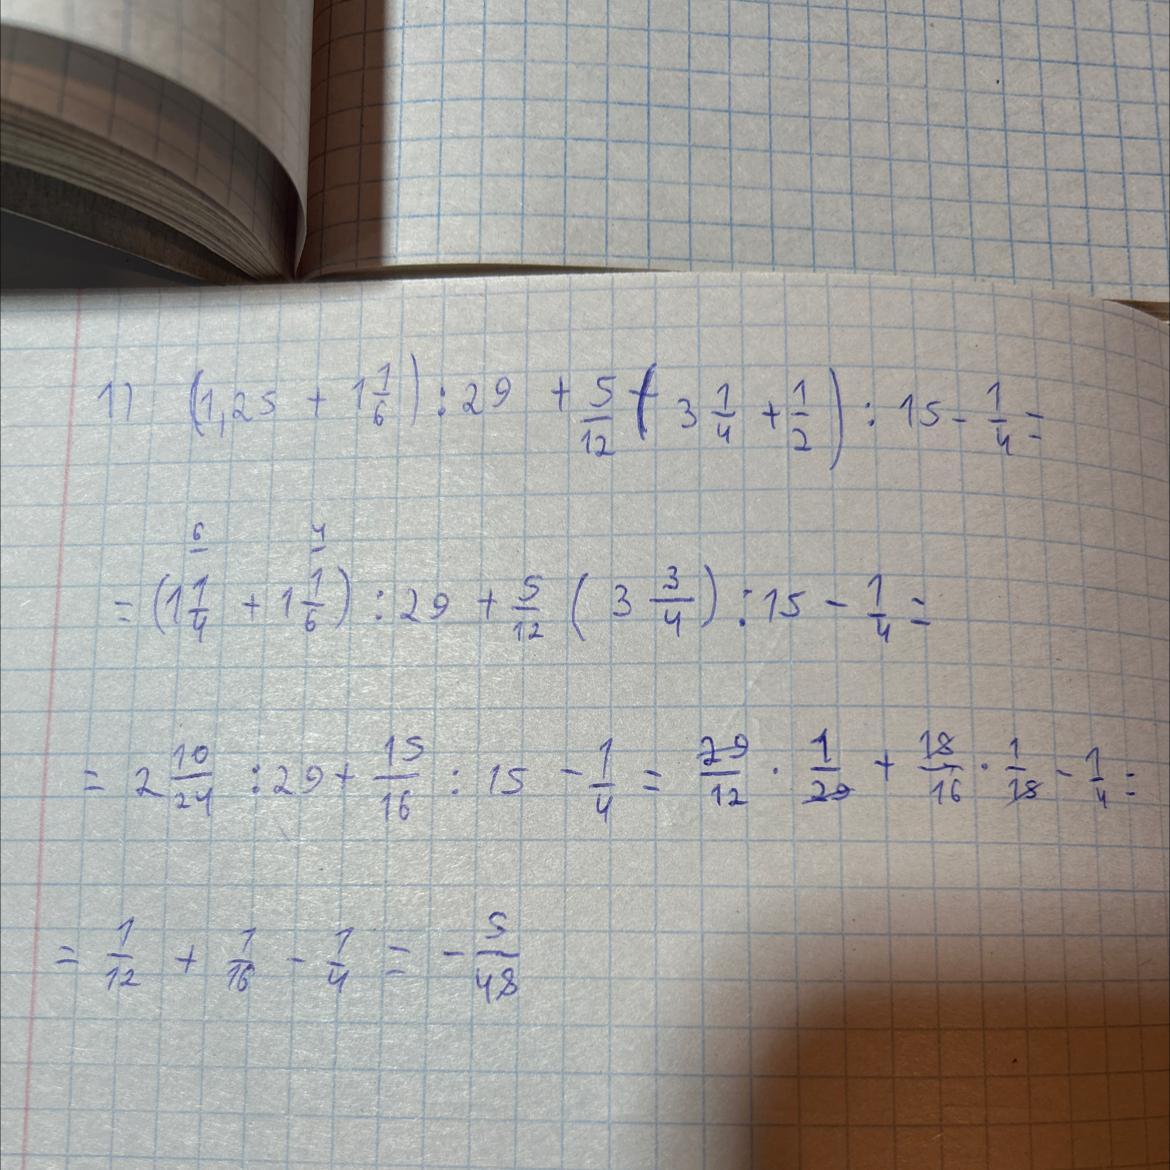 1) (1,25 + 1 1/6) : 29 + 5/12 (3 1/4 + 1/2) : 15 - 1/4 =
6 4
= (1 1/4 + 1 1/6) : 29 + 5/12 (3 3/4) : 15 - 1/4 =
= 2 10/24 : 29 + 15/16 : 15 - 1/4 = 29/12 · 1/29 + 18/16 · 1/18 - 1/4 =
= 1/12 + 1/16 - 1/4 = - 5/48